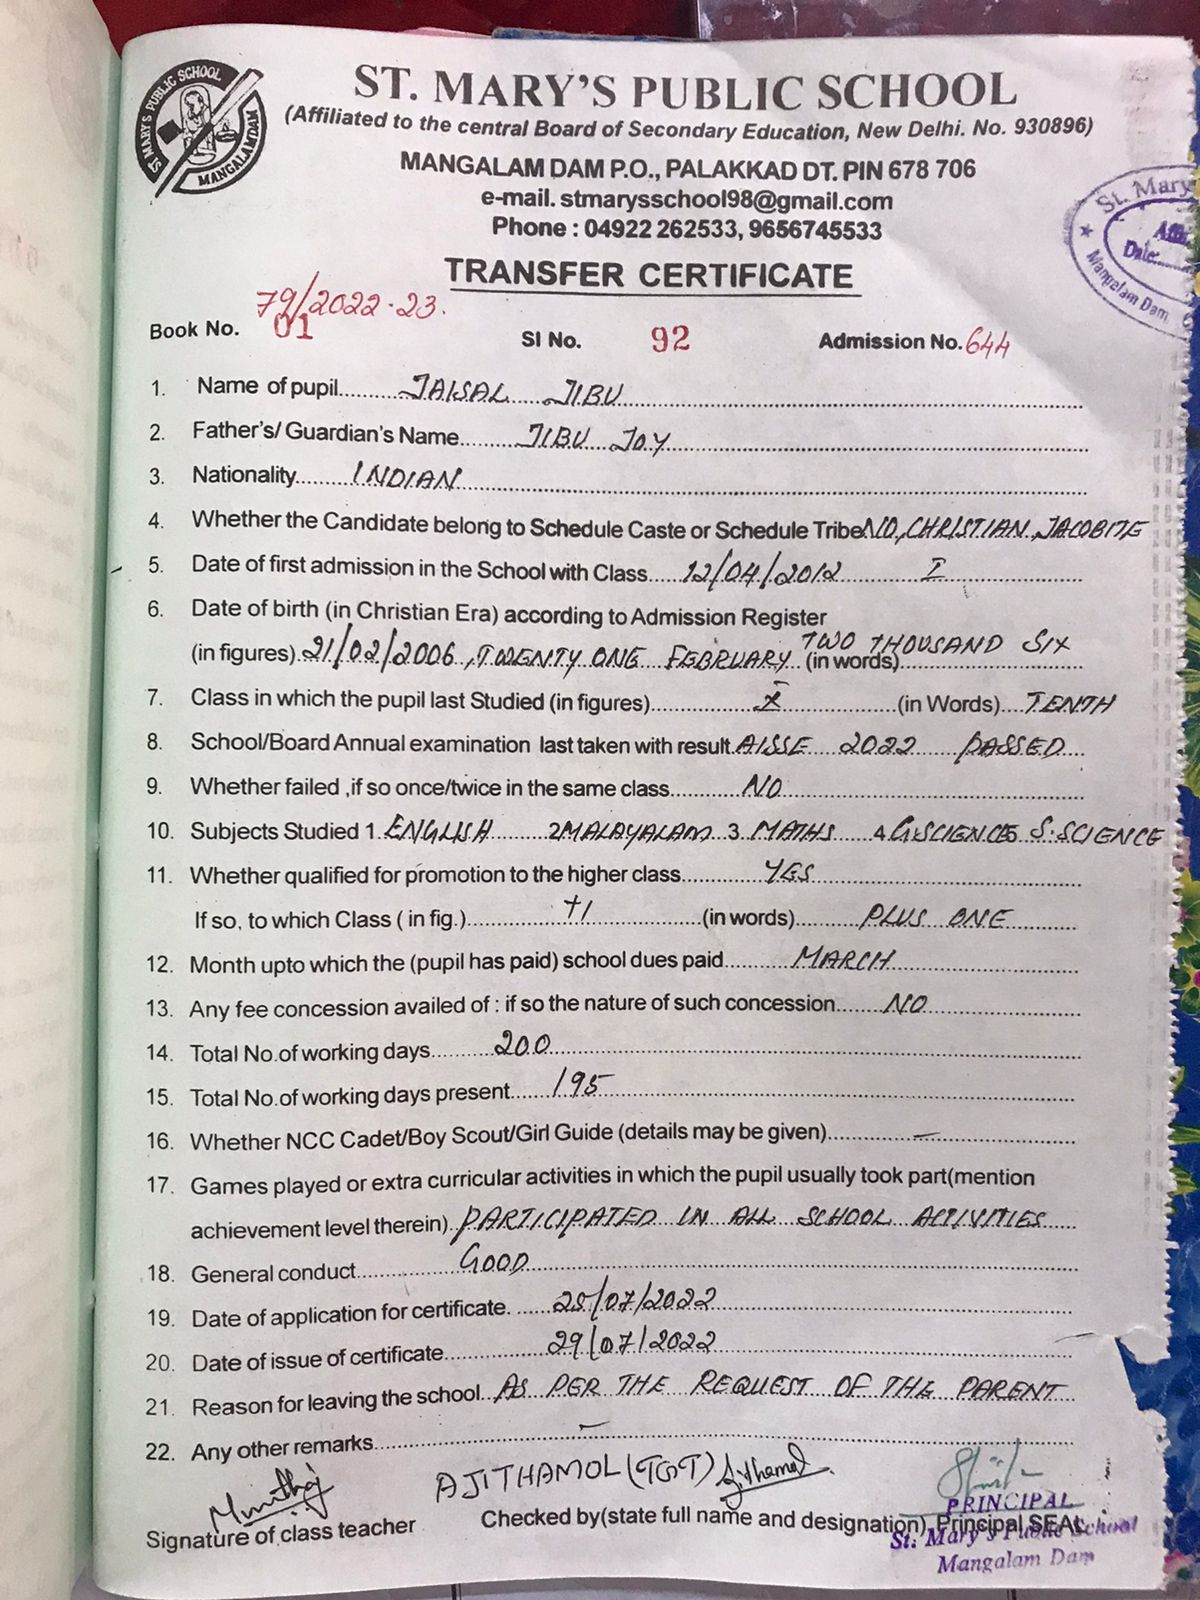 ST MARY'S PUBLIC SCHOOL
MANGALAMDAM
ST. MARY'S PUBLIC SCHOOL
(Affiliated to the central Board of Secondary Education, New Delhi. No. 930896)
MANGALAM DAM P.O., PALAKKAD DT. PIN 678 706
e-mail. stmarysschool98@gmail.com
Phone : 04922 262533, 9656745533
St. Mary
Date:
Mangalam Dam
TRANSFER CERTIFICATE
79/2022-23.
Book No. 01 SI No. 92 Admission No. 644
1. Name of pupil JAISAL JIBU
2. Father's/ Guardian's Name JIBU JOY
3. Nationality INDIAN
4. Whether the Candidate belong to Schedule Caste or Schedule Tribe NO, CHRISTIAN, JACOBITE
5. Date of first admission in the School with Class 12/04/2012 I
6. Date of birth (in Christian Era) according to Admission Register
(in figures) 21/02/2006, TWENTY ONE FEBRUARY (in words) TWO THOUSAND SIX
7. Class in which the pupil last Studied (in figures) X (in Words) TENTH
8. School/Board Annual examination last taken with result AISSE 2022 PASSED
9. Whether failed ,if so once/twice in the same class NO
10. Subjects Studied 1. ENGLISH 2 MALAYALAM 3. MATHS 4 G.SCIENCE 5 S.SCIENCE
11. Whether qualified for promotion to the higher class YES
If so, to which Class ( in fig.) +1 (in words) PLUS ONE
12. Month upto which the (pupil has paid) school dues paid MARCH
13. Any fee concession availed of : if so the nature of such concession NO
14. Total No.of working days 200
15. Total No.of working days present 195
16. Whether NCC Cadet/Boy Scout/Girl Guide (details may be given) —
17. Games played or extra curricular activities in which the pupil usually took part(mention
achievement level therein) PARTICIPATED IN ALL SCHOOL ACTIVITIES
18. General conduct GOOD
19. Date of application for certificate. 25/07/2022
20. Date of issue of certificate 29/07/2022
21. Reason for leaving the school AS PER THE REQUEST OF THE PARENT
22. Any other remarks —
AJITHAMOL (TGT) Ajithamol
Signature of class teacher Checked by(state full name and designation) Principal SEAL
PRINCIPAL
St. Mary's Public School
Mangalam Dam